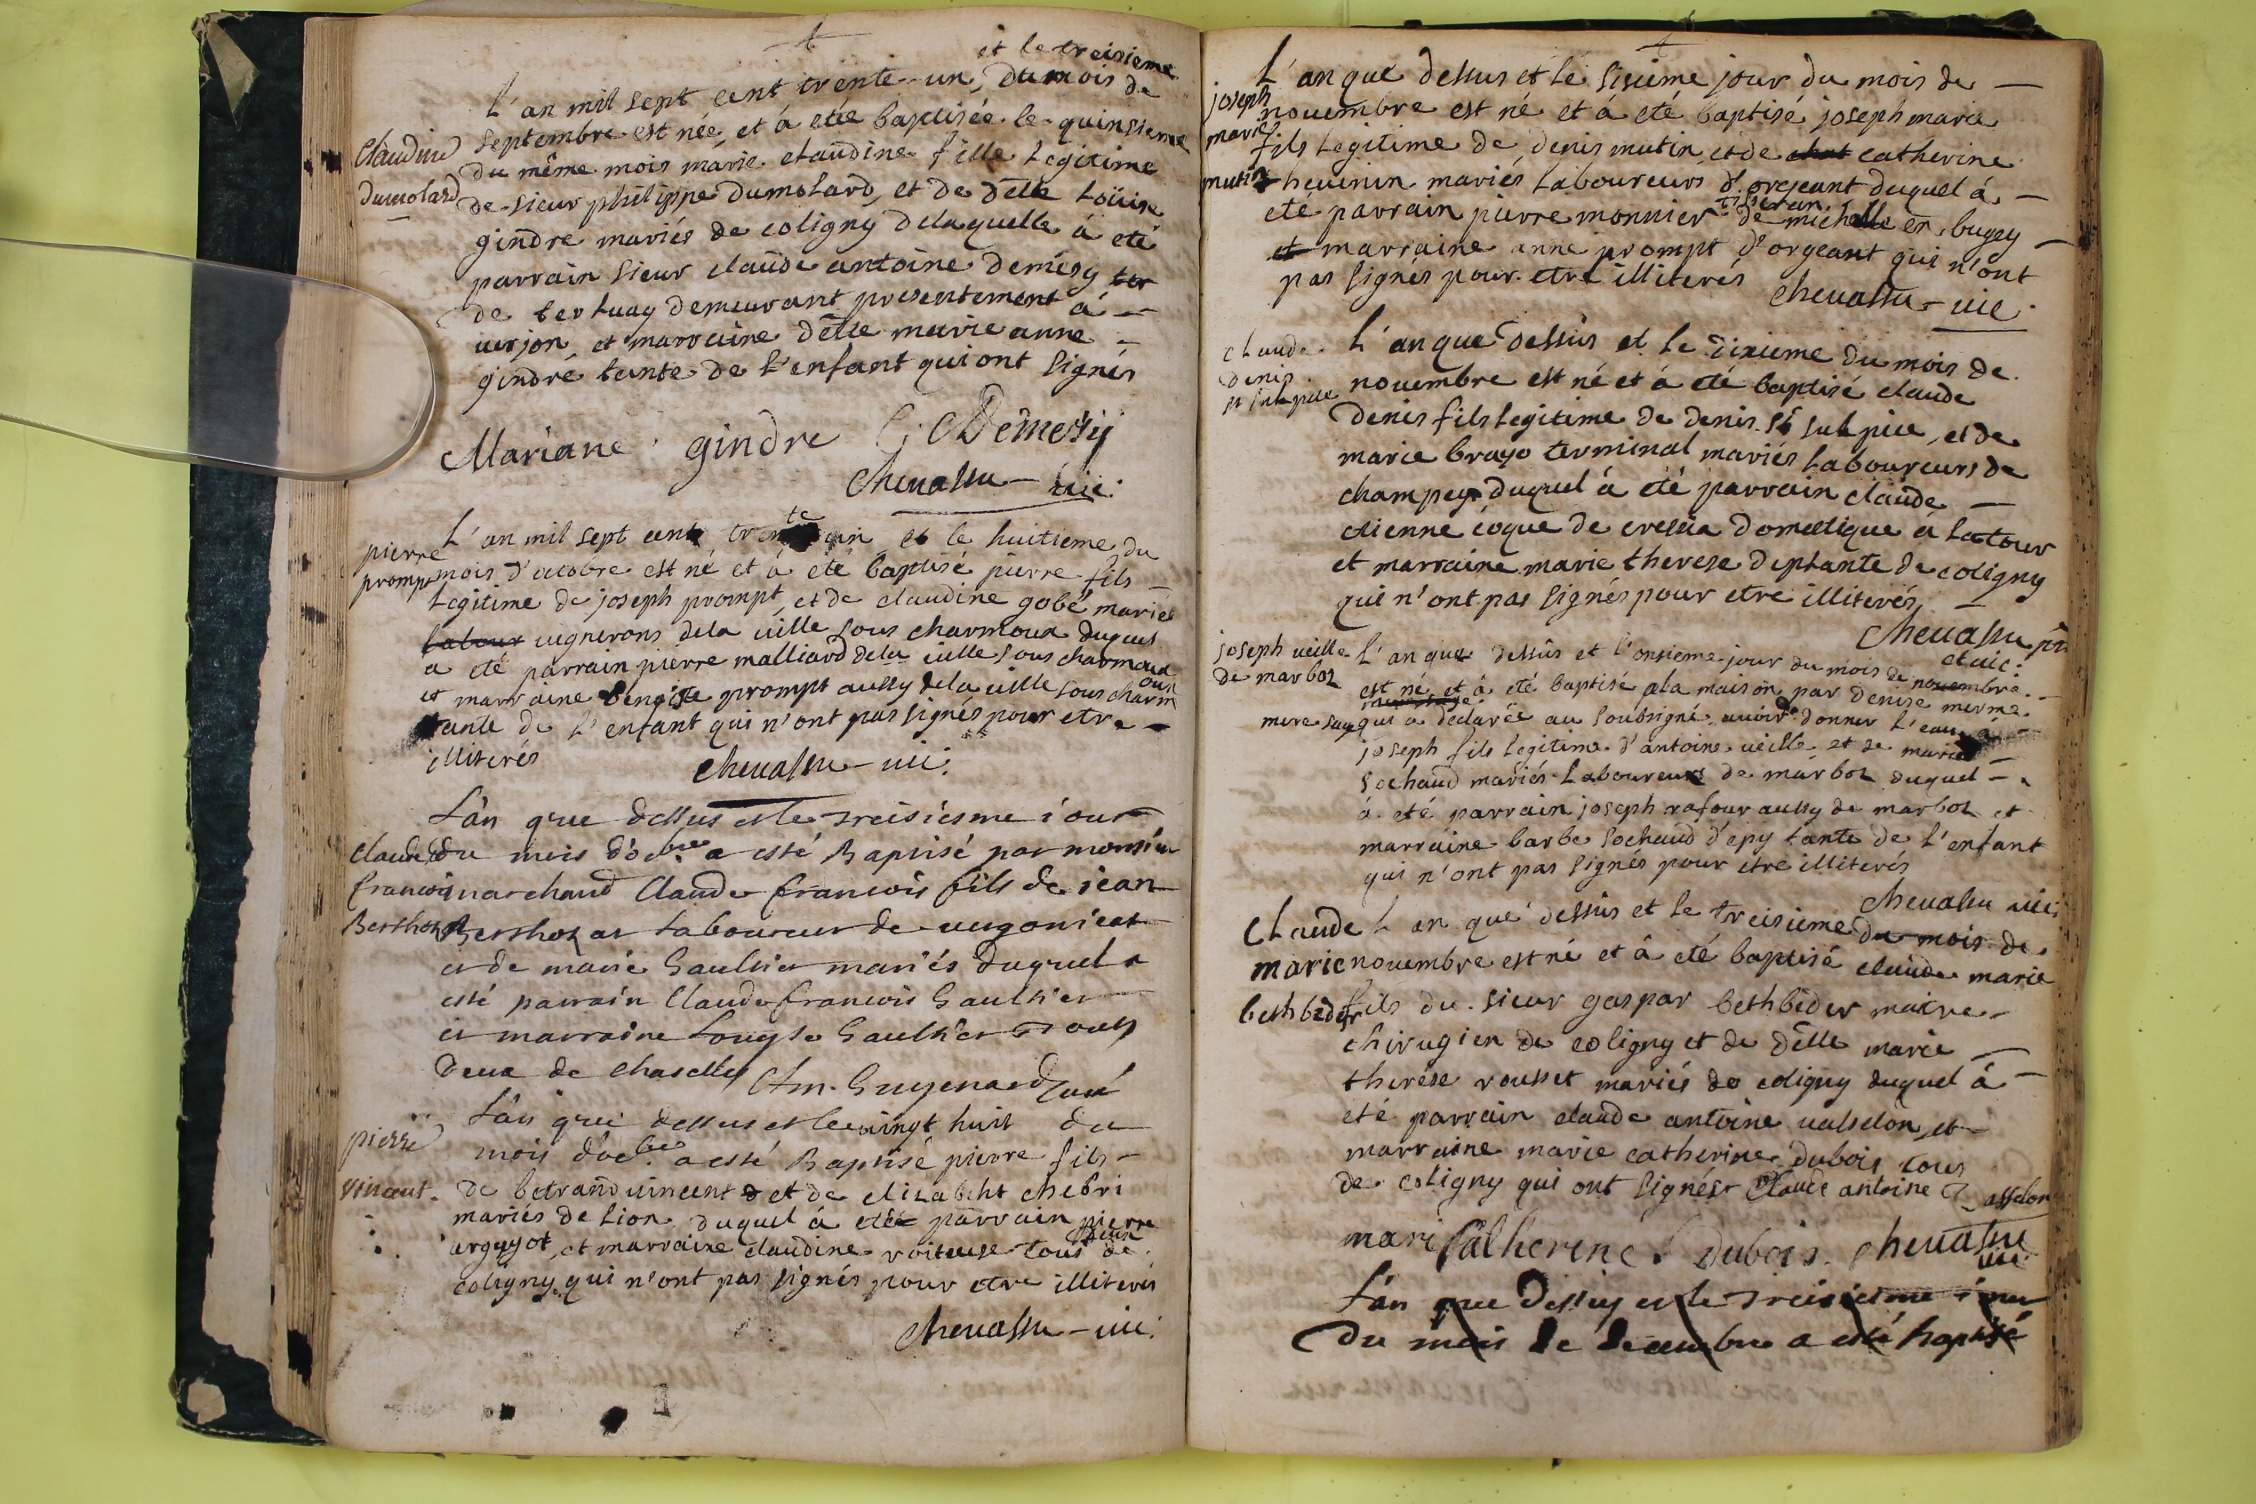 et le treisieme
L'an mil sept cent trente-un, du mois de
septembre est née, et á etée baptisée le quinsieme
Claudine
du même mois marie claudine fille legitime
Dumolard
de sieur philippe Dumolard, et de delle Loüise
gindre mariés de coligny delaquelle á eté
parrain sieur claude antoine demesy
de ver
verjon, et marraine delle marie anne
gindre tante de l'enfant qui ont signés
Mariane gindre C Demesy
Chevassu - vic.
L'an mil sept cent trente un et le huitieme du
pierre
prompt
mois d'octobre est né et á eté baptisé pierre fils
legitime de joseph prompt, et de claudine gobé mariés
labour vignerons dela ville sous charmoux duquel
a eté parrain pierre malliard dela ville sous charmoux
et marraine benoiste prompt aussy dela ville sous charmoux
tante de l'enfant qui n'ont pas signés pour etre
illiterés
chevassu - vic.
L'an que dessus et le treisiesme iour
Claude
du mois d'obre a esté Baptisé par monsieur
francois
marchand Claude francois fils de iean
Berthoz
Berthoz laboureur de
et de marie Gaultier mariés duquel a
esté parrain Claude francois Gaultier
et marraine Louyse Gaultier tous
deux de chaselles Cl.m. Guyenard curé
L'an que dessus et le vingt huit du
pierre
mois d'obre a esté Baptisé pierre fils
vincent.
de betrand vincent et de elizabeht chebri
mariés de Lion duquel á eté parrain pierre
arguyot, et marraine claudine roiteuse tous deux de
coligny, qui n'ont pas signés pour etre illiterés
chevassu - vic.
L'an que dessus et le sisieme jour du mois de
joseph
marie
mutin
novembre est né et á eté baptisé joseph marie
fils legitime de denis mutin, et de chat catherine
thevenin mariés laboureurs d'orgeant duquel á
eté parrain pierre monnier tisseran de michelle en bugey
et marraine anne prompt d'orgeant qui n'ont
pas signés pour etre illiterés
chevassu - vic.
Claude
denis
st sulpice
L'an que dessus et le dixieme du mois de
novembre est né et á eté baptisé claude
denis fils legitime de denis st sulpice, et de
marie brayo terminal mariés laboureurs de
champey duquel á eté parrain claude
etienne coque de cressia domestique á la tour
et marraine marie therese deplante de coligny
qui n'ont pas signés pour etre illiterés
Chevassu pr
et vic.
joseph veille
de marboz
L'an que dessus et l'onsieme jour du mois de novembre
est né et á eté baptisé ala maison par denise merme
mere sage
qui a declarée au soubsigné avoir donner l'eau á
joseph fils legitime d'antoine veille et de marie
sochaud mariés laboureurs de marboz duquel
á eté parrain joseph rafour aussy de marboz et
marraine barbe sochaud d'epy tante de l'enfant
qui n'ont pas signés pour etre illiterés
chevassu vic.
Claude
marie
bethbeder
L'an que dessus et le treisieme du mois de
novembre est né et á eté baptisé claude marie
fils du sieur gaspar bethbeder maitre
chirugien de coligny et de delle marie
therese rousset mariés de coligny duquel á
eté parrain claude antoine valselon, et
marraine marie catherine dubois tous
de coligny qui ont signés Claude antoine
mari Catherine Dubois. chevassu
vic.
L'an que dessus et le treisiesme iour
du mois de decembre a esté baptisé